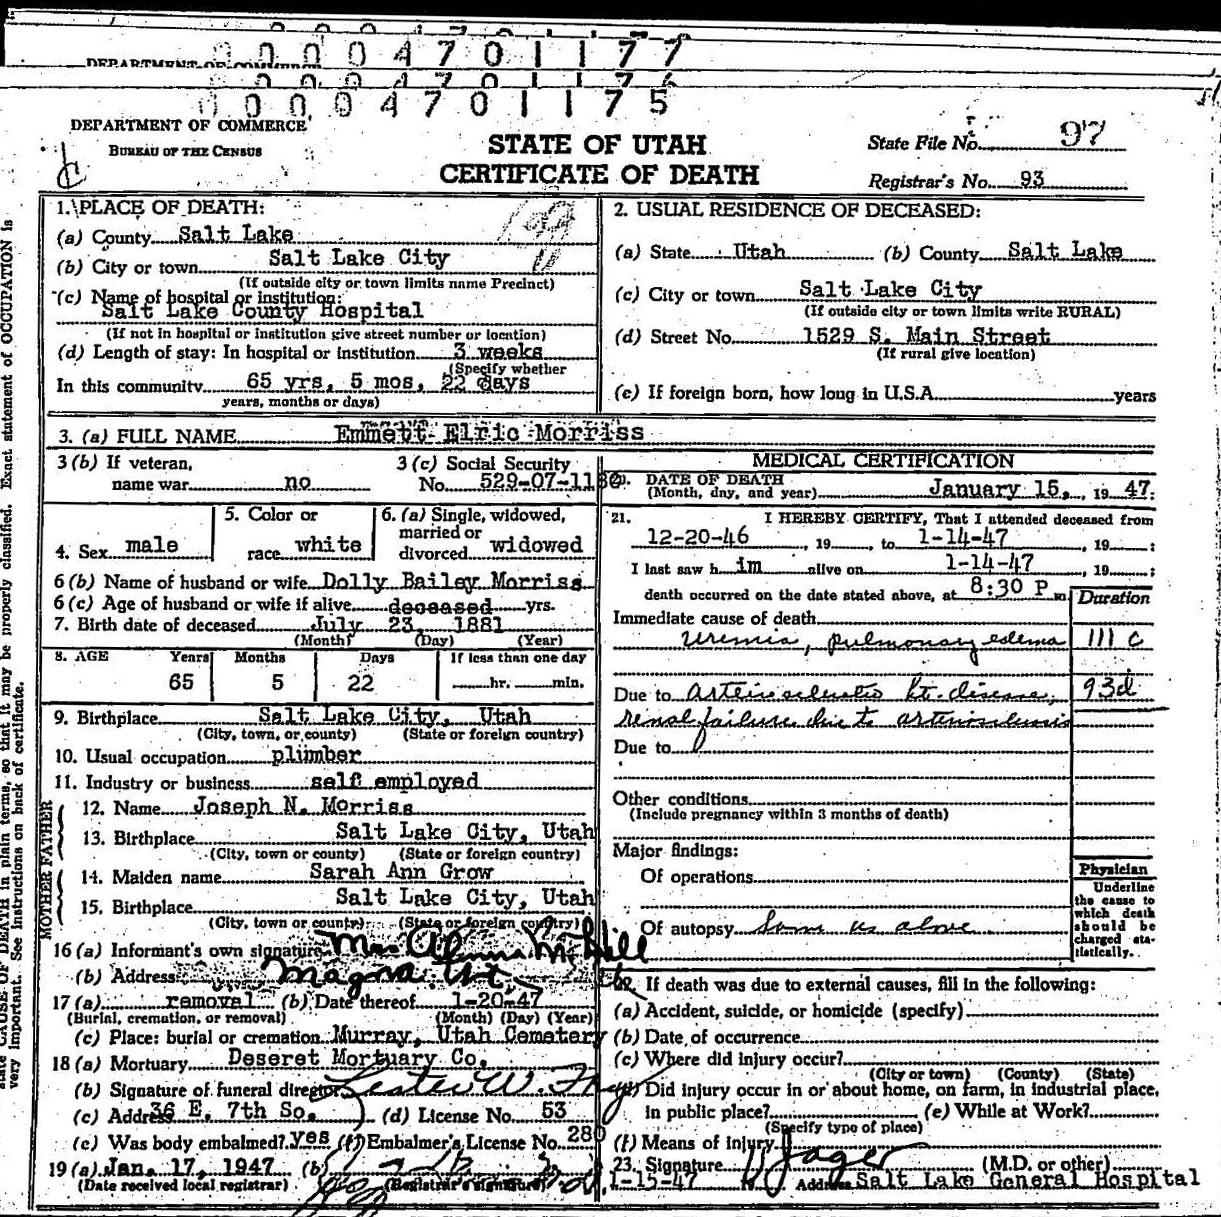 0 0 0 4 7 0 1 1 7 7
DEPARTMENT OF COMMERCE
0 0 0 4 7 0 1 1 7 6
0 0 0 4 7 0 1 1 7 5
DEPARTMENT OF COMMERCE
BUREAU OF THE CENSUS
STATE OF UTAH
CERTIFICATE OF DEATH
State File No. 97
Registrar's No. 93
1. PLACE OF DEATH:
(a) County Salt Lake
(b) City or town Salt Lake City
(If outside city or town limits name Precinct)
(c) Name of hospital or institution:
Salt Lake County Hospital
(If not in hospital or institution give street number or location)
(d) Length of stay: In hospital or institution 3 weeks
(Specify whether
In this community 65 yrs, 5 mos, 22 days
years, months or days)
2. USUAL RESIDENCE OF DECEASED:
(a) State Utah (b) County Salt Lake
(c) City or town Salt Lake City
(If outside city or town limits write RURAL)
(d) Street No. 1529 S. Main Street
(If rural give location)
(e) If foreign born, how long in U.S.A. years
3. (a) FULL NAME Emmett Elric Morriss
3 (b) If veteran, name war no
3 (c) Social Security No. 529-07-1180
4. Sex male
5. Color or race white
6. (a) Single, widowed, married or divorced widowed
6 (b) Name of husband or wife Dolly Bailey Morriss
6 (c) Age of husband or wife if alive deceased yrs.
7. Birth date of deceased July 23 1881
(Month) (Day) (Year)
8. AGE Years Months Days If less than one day
65 5 22 hr. min.
9. Birthplace Salt Lake City, Utah
(City, town, or county) (State or foreign country)
10. Usual occupation plumber
11. Industry or business self employed
FATHER
12. Name Joseph N. Morriss
13. Birthplace Salt Lake City, Utah
(City, town or county) (State or foreign country)
MOTHER
14. Maiden name Sarah Ann Grow
15. Birthplace Salt Lake City, Utah
(City, town or county) (State or foreign country)
16 (a) Informant's own signature Mrs Alma M. Hill
(b) Address Magna, Ut.
17 (a) removal (b) Date thereof 1-20-47
(Burial, cremation, or removal) (Month) (Day) (Year)
(c) Place: burial or cremation Murray, Utah Cemetery
18 (a) Mortuary Deseret Mortuary Co.
(b) Signature of funeral director Lester W.
(c) Address 36 E. 7th So. (d) License No. 53
(e) Was body embalmed? yes (f) Embalmer's License No. 280
19 (a) Jan. 17, 1947 (b)
(Date received local registrar) (Registrar's signature)
MEDICAL CERTIFICATION
20. DATE OF DEATH
(Month, day, and year) January 15, 19 47:
21. I HEREBY CERTIFY, That I attended deceased from
12-20-46, 19 , to 1-14-47, 19 ;
I last saw h im alive on 1-14-47, 19 ;
death occurred on the date stated above, at 8:30 P m
Duration
Immediate cause of death
uremia, pulmonary edema 111 c
Due to arteriosclerotic ht. disease, 93d
renal failure due to arteriosclerosis
Due to
Other conditions
(Include pregnancy within 3 months of death)
Major findings:
Of operations
Of autopsy Same as above
Physician
Underline the cause to which death should be charged statistically.
22. If death was due to external causes, fill in the following:
(a) Accident, suicide, or homicide (specify)
(b) Date of occurrence
(c) Where did injury occur?
(City or town) (County) (State)
(d) Did injury occur in or about home, on farm, in industrial place,
in public place? (e) While at Work?
(Specify type of place)
(f) Means of injury
23. Signature Jager (M.D. or other)
1-15-47 Address Salt Lake General Hospital
CAUSE OF DEATH in plain terms, so that it may be properly classified. Exact statement of OCCUPATION is
very important. See instructions on back of certificate.